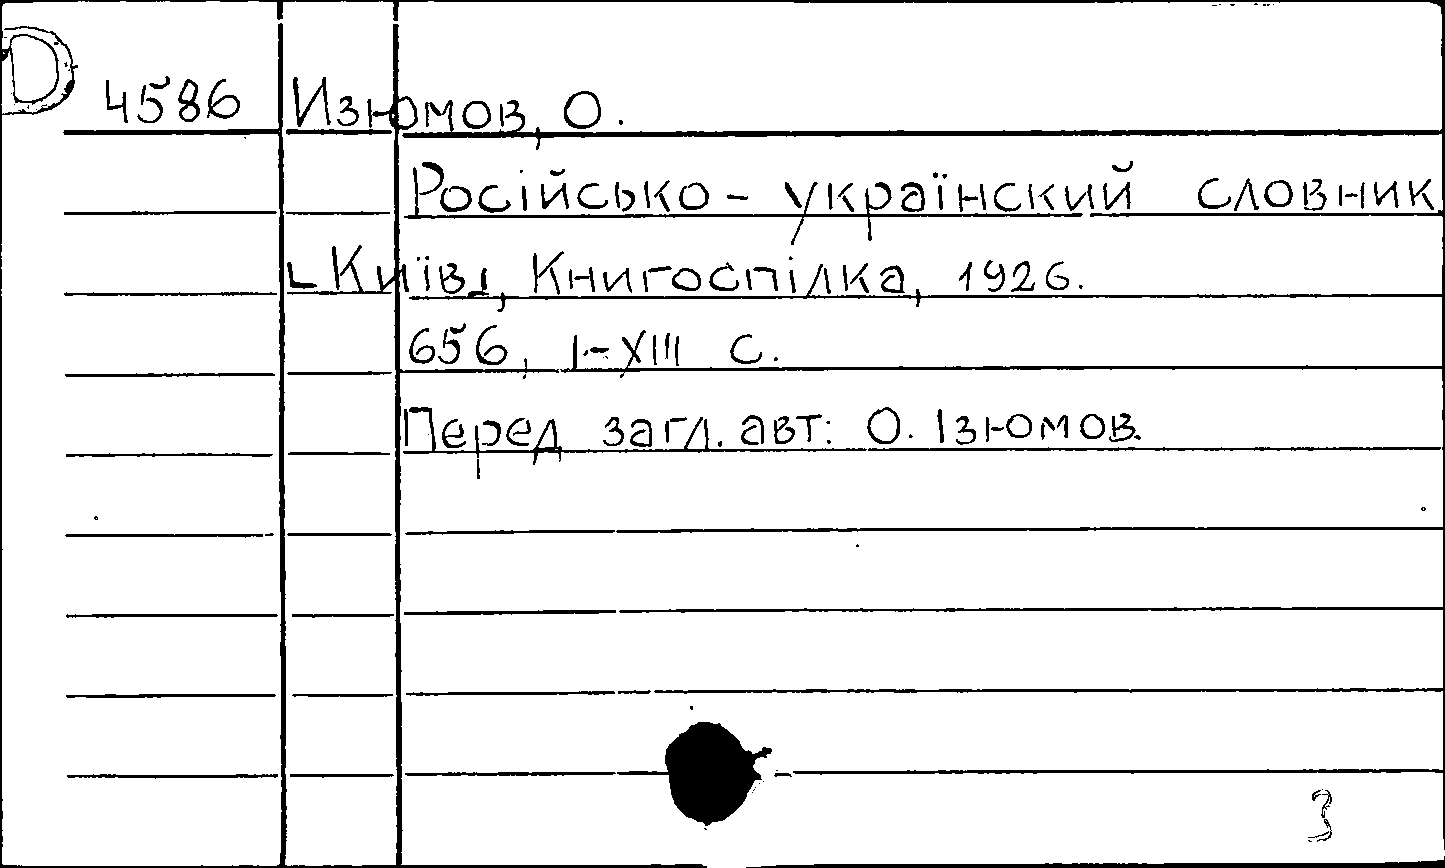 D
4586 Изюмов, О.
Російсько - українский словник.
[Київ], Книгоспілка, 1926.
656, I-XIII с.
Перед загл. авт: О. Ізюмов.
3